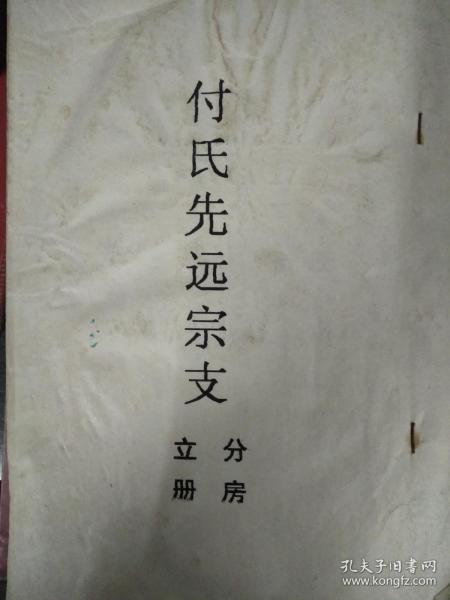 付氏先远宗支
分房
立册
孔夫子旧书网
www.kongfz.com